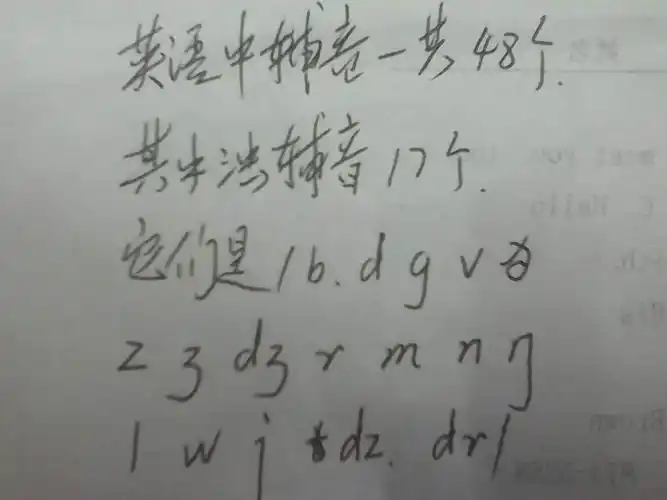 英语中辅音一共48个.
其中浊辅音17个.
它们是/b. d g v ð
z ʒ dʒ r m n ŋ
l w j dz. dr/